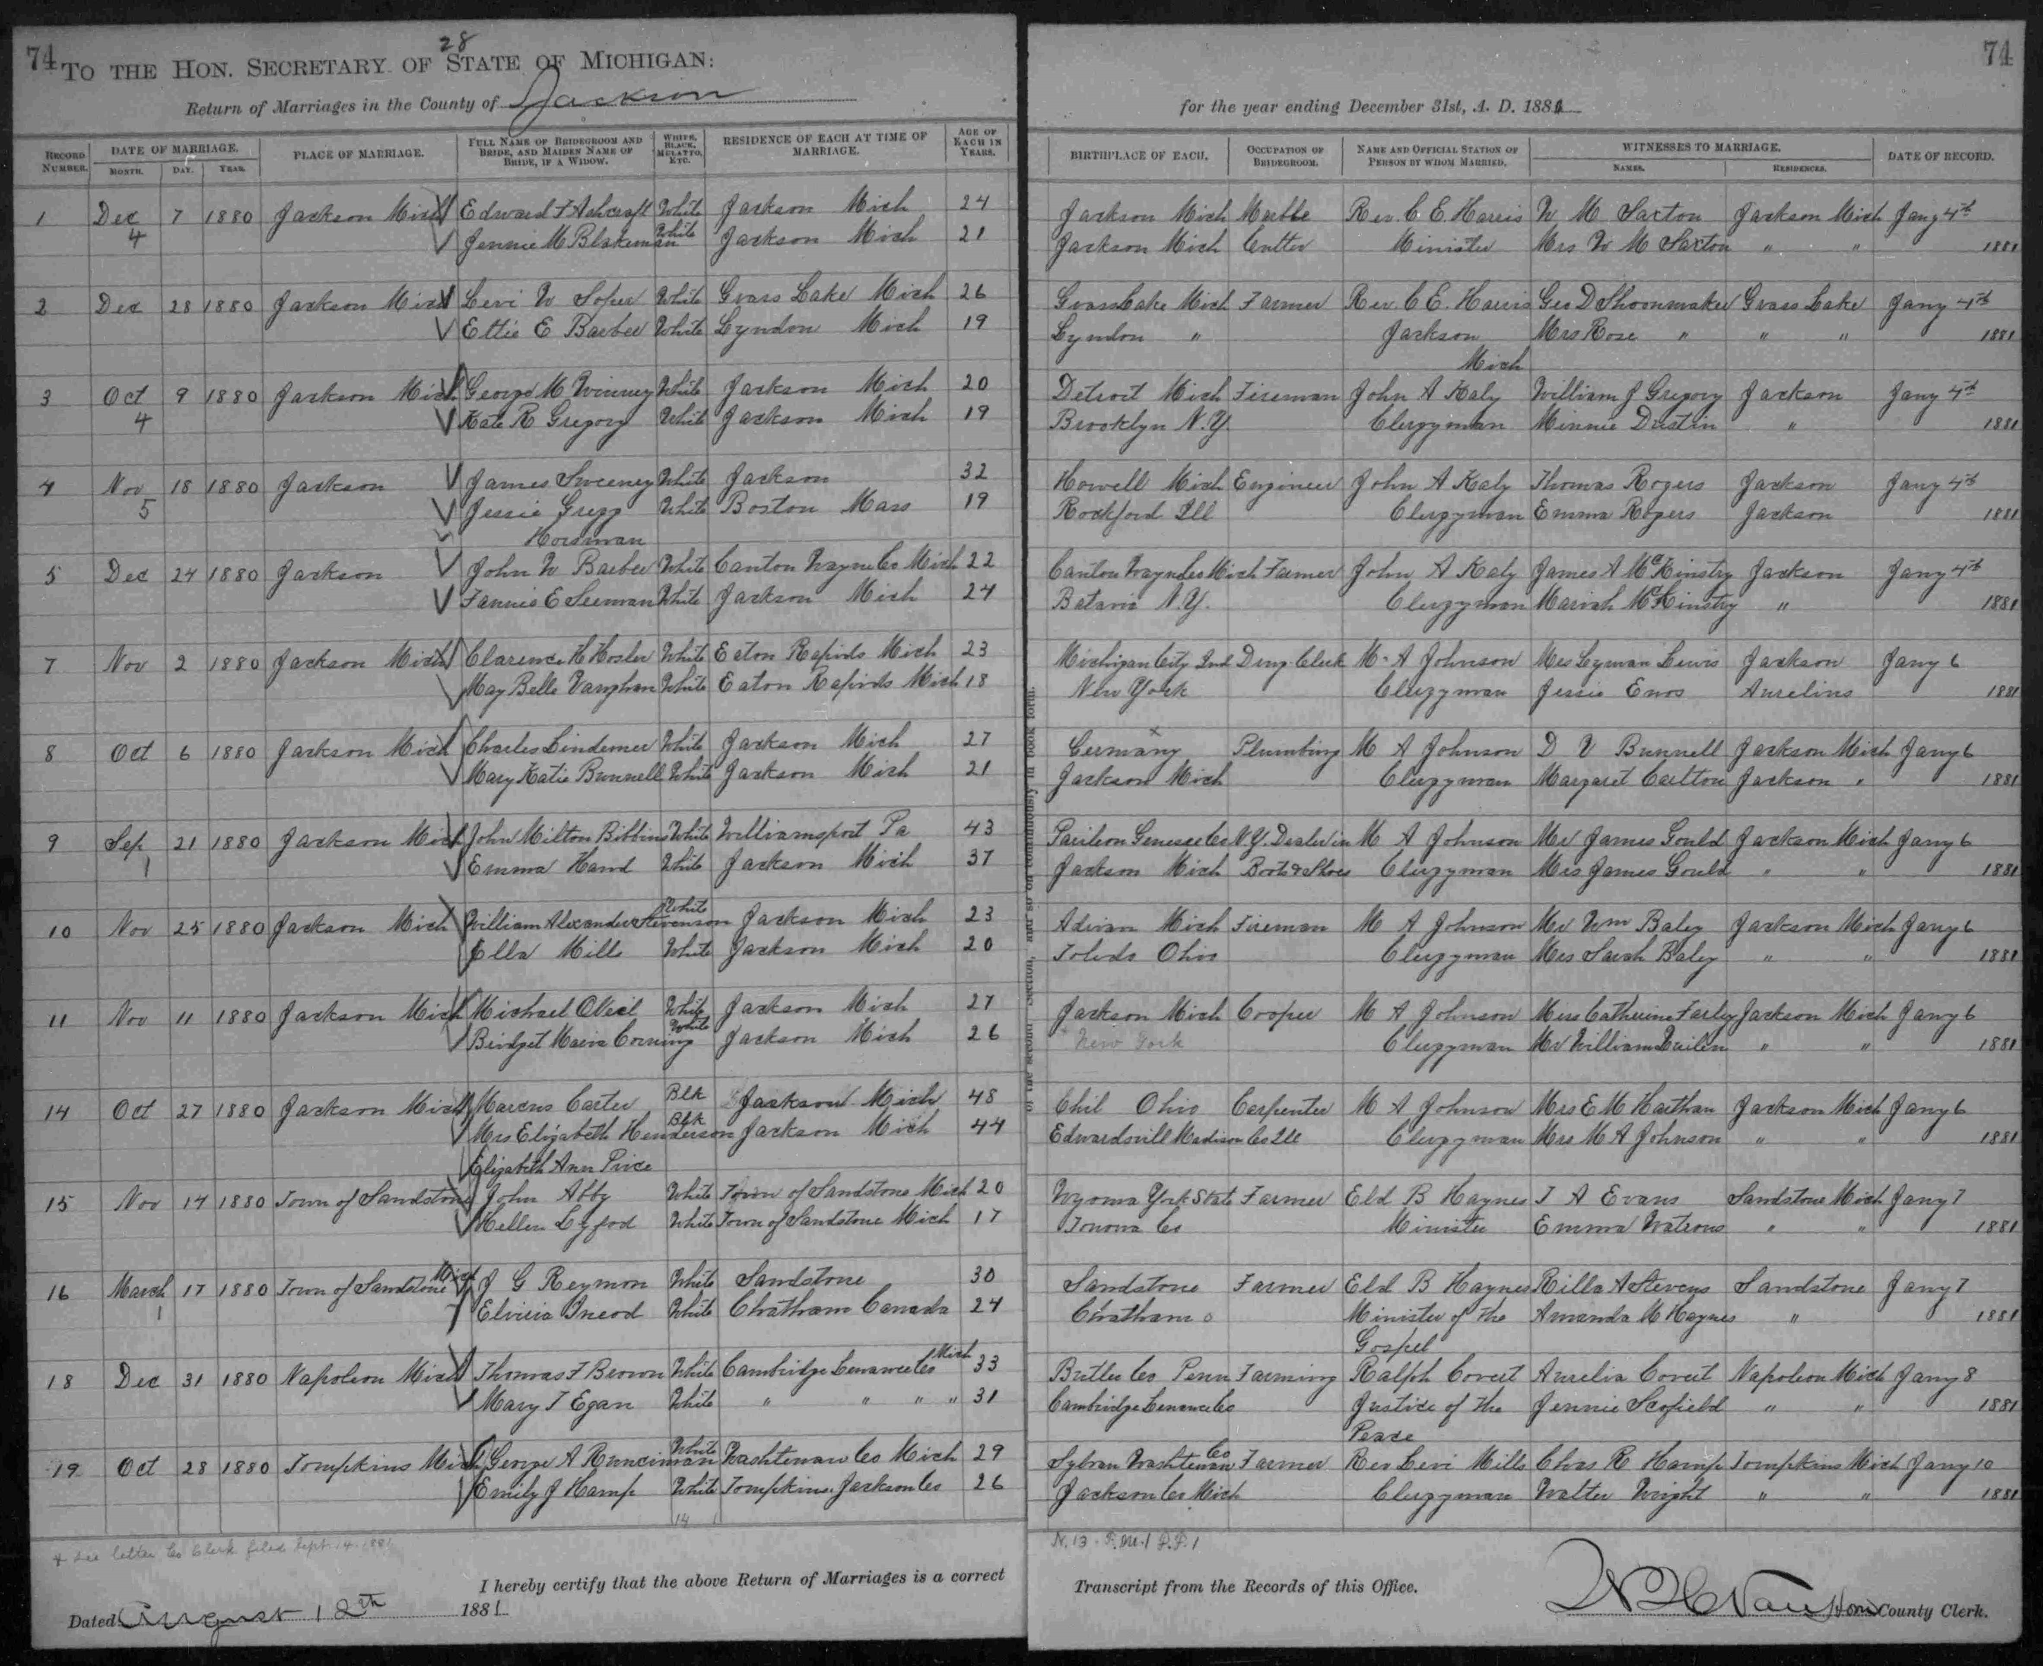 74
28
TO THE HON. SECRETARY OF STATE OF MICHIGAN:
Return of Marriages in the County of Jackson
RECORD NUMBER. DATE OF MARRIAGE. MONTH. DAY. YEAR. PLACE OF MARRIAGE. FULL NAME OF BRIDEGROOM AND BRIDE, AND MAIDEN NAME OF BRIDE, IF A WIDOW. WHITE, BLACK, MULATTO, ETC. RESIDENCE OF EACH AT TIME OF MARRIAGE. AGE OF EACH IN YEARS.
1 Dec 7 1880 Jackson Mich Edward F Ashcraft White Jackson Mich 24
4 Jennie M Blakeman White Jackson Mich 21
2 Dec 28 1880 Jackson Mich Levi W Soper White Grass Lake Mich 26
Ettie E Barber White Lyndon Mich 19
3 Oct 9 1880 Jackson Mich George M Winney White Jackson Mich 20
4 Kate R Gregory White Jackson Mich 19
4 Nov 18 1880 Jackson James Sweeney White Jackson 32
5 Jessie Gregg White Boston Mass 19
Horsman
5 Dec 24 1880 Jackson John W Barber White Canton Wayne Co Mich 22
Fannie E Seeman White Jackson Mich 24
7 Nov 2 1880 Jackson Mich Clarence H Hosler White Eaton Rapids Mich 23
May Belle Vaughan White Eaton Rapids Mich 18
8 Oct 6 1880 Jackson Mich Charles Lindemer White Jackson Mich 27
Mary Katie Bunnell White Jackson Mich 21
9 Sep 21 1880 Jackson Mich John Milton Bibbins White Williamsport Pa 43
1 Emma Hand White Jackson Mich 37
10 Nov 25 1880 Jackson Mich William Alexander Stevenson White Jackson Mich 23
Ella Mills White Jackson Mich 20
11 Nov 11 1880 Jackson Mich Michael ONeil White Jackson Mich 27
Bridget Maria Corning White Jackson Mich 26
14 Oct 27 1880 Jackson Mich Marcus Carter Blk Jackson Mich 48
Mrs Elizabeth Henderson Blk Jackson Mich 44
Elizabeth Ann Price
15 Nov 14 1880 Town of Sandstone John Abby White Town of Sandstone Mich 20
Hellen Lyfod White Town of Sandstone Mich 17
16 March 17 1880 Town of Sandstone Mich J G Reymon White Sandstone 30
1 Elvicia Sneod White Chatham Canada 24
18 Dec 31 1880 Napoleon Mich Thomas F Brown White Cambridge Lenawee Co Mich 33
Mary T Egan White " " " " 31
19 Oct 28 1880 Tompkins Mich George A Runciman White Washtenaw Co Mich 29
Emily J Hamp White Tompkins Jackson Co 26
14 1
+ See letter Co Clerk filed Sept. 14. 1881
I hereby certify that the above Return of Marriages is a correct
Dated August 12th 1881
74
for the year ending December 31st, A. D. 1881
BIRTHPLACE OF EACH. OCCUPATION OF BRIDEGROOM. NAME AND OFFICIAL STATION OF PERSON BY WHOM MARRIED. WITNESSES TO MARRIAGE. NAMES. RESIDENCES. DATE OF RECORD.
Jackson Mich Marble Rev. C E Harris W M Saxton Jackson Mich Jany 4th
Jackson Mich Cutter Minister Mrs W M Saxton " " 1881
Grass Lake Mich Farmer Rev. C E. Harris Geo D Shoonmaker Grass Lake Jany 4th
Lyndon " Jackson Mrs Rose " " " 1881
Mich
Detroit Mich Fireman John A Kaly William J Gregory Jackson Jany 4th
Brooklyn N.Y. Clergyman Minnie Dustin " 1881
Howell Mich Engineer John A Kaly Thomas Rogers Jackson Jany 4th
Rockford Ill Clergyman Emma Rogers Jackson 1881
Canton Wayne Co Mich Farmer John A Kaly James A McKinstry Jackson Jany 4th
Batavia N.Y. Clergyman Mariah McKinstry " 1881
Michigan City Ind Drug Clerk M. A Johnson Mrs Lyman Lewis Jackson Jany 6
New York Clergyman Jessie Enos Aurelius 1881
Germany Plumbing M A Johnson D V Bunnell Jackson Mich Jany 6
Jackson Mich Clergyman Margaret Carlton Jackson " 1881
Pavilion Genesee Co N.Y. Dealer in M A Johnson Mr James Gould Jackson Mich Jany 6
Jackson Mich Boots & Shoes Clergyman Mrs James Gould " " 1881
Adrian Mich Fireman M A Johnson Mr Wm Baley Jackson Mich Jany 6
Toledo Ohio Clergyman Mrs Sarah Baley " " 1881
Jackson Mich Cooper M A Johnson Miss Catherine Farley Jackson Mich Jany 6
+ New York Clergyman Mr William Quilen " " 1881
Chil Ohio Carpenter M A Johnson Mrs E M Hathan Jackson Mich Jany 6
Edwardsvill Madison Co Ill Clergyman Mrs M A Johnson " " 1881
Wyoma York State Farmer Eld B Haynes T A Evans Sandstone Mich Jany 7
Ionowa Co Minister Emma Watrous " " 1881
Sandstone Farmer Eld B Haynes Rilla A Stevens Sandstone Jany 7
Chatham o Minister of the Amanda M Haynes " 1881
Gospel
Butler Co Penn Farming Ralph Covert Aurelia Covert Napoleon Mich Jany 8
Cambridge Lenawee Co Justice of the Jennie Scofield " " 1881
Peace
Sylvan Washtenaw Co Farmer Rev Levi Mills Chas R Hamp Tompkins Mich Jany 10
Jackson Co Mich Clergyman Walter Wright " " 1881
N. 13 F.M. 1 P.P. 1
Transcript from the Records of this Office.
County Clerk.